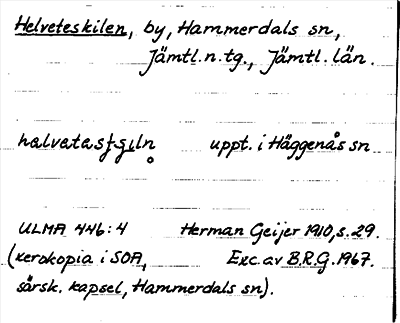 Helveteskilen, by, Hammerdals sn,
Jämtl.n.tg., Jämtl. län.
uppt. i Häggenås sn
ULMA 446:4 Herman Geijer 1910, s. 29.
(xerokopia i SOA, Exc. av B.R.G. 1967.
särsk. kapsel, Hammerdals sn).